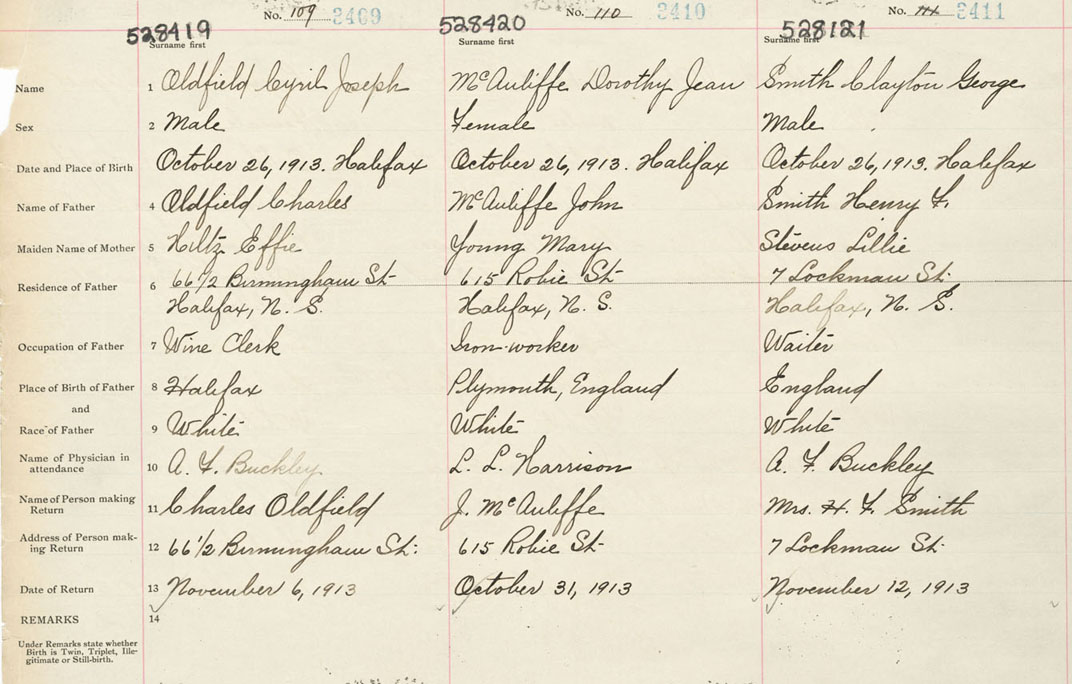 No. 109 3409 No. 110 3410 No. 111 3411
528419 528420 528121
Surname first Surname first Surname first
Name 1 Oldfield Cyril Joseph McAuliffe Dorothy Jean Smith Clayton George
Sex 2 Male Female Male
Date and Place of Birth October 26, 1913. Halifax October 26, 1913. Halifax October 26, 1913. Halifax
Name of Father 4 Oldfield Charles McAuliffe John Smith Henry F.
Maiden Name of Mother 5 Hiltz Effie Young Mary Stevens Lillie
Residence of Father 6 66 1/2 Birmingham St 615 Robie St 7 Lockman St.
Halifax, N. S. Halifax, N. S. Halifax, N. S.
Occupation of Father 7 Wine Clerk Iron-worker Waiter
Place of Birth of Father 8 Halifax Plymouth, England England
and
Race of Father 9 White White White
Name of Physician in
attendance 10 A. F. Buckley L. L. Harrison A. F. Buckley
Name of Person making
Return 11 Charles Oldfield J. McAuliffe Mrs. H. F. Smith
Address of Person mak-
ing Return 12 66 1/2 Birmingham St. 615 Robie St 7 Lockman St.
Date of Return 13 November 6, 1913 October 31, 1913 November 12, 1913
REMARKS 14
Under Remarks state whether
Birth is Twin, Triplet, Ille-
gitimate or Still-birth.